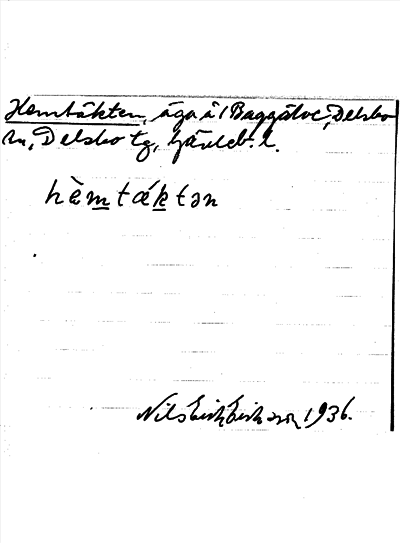 Hemtäkten, äga å 1 Baggätve, Delsbo
sn, Delsbo tg, Gävleb. l.
hèmtäktən
Nils Erik Eriksson 1936.